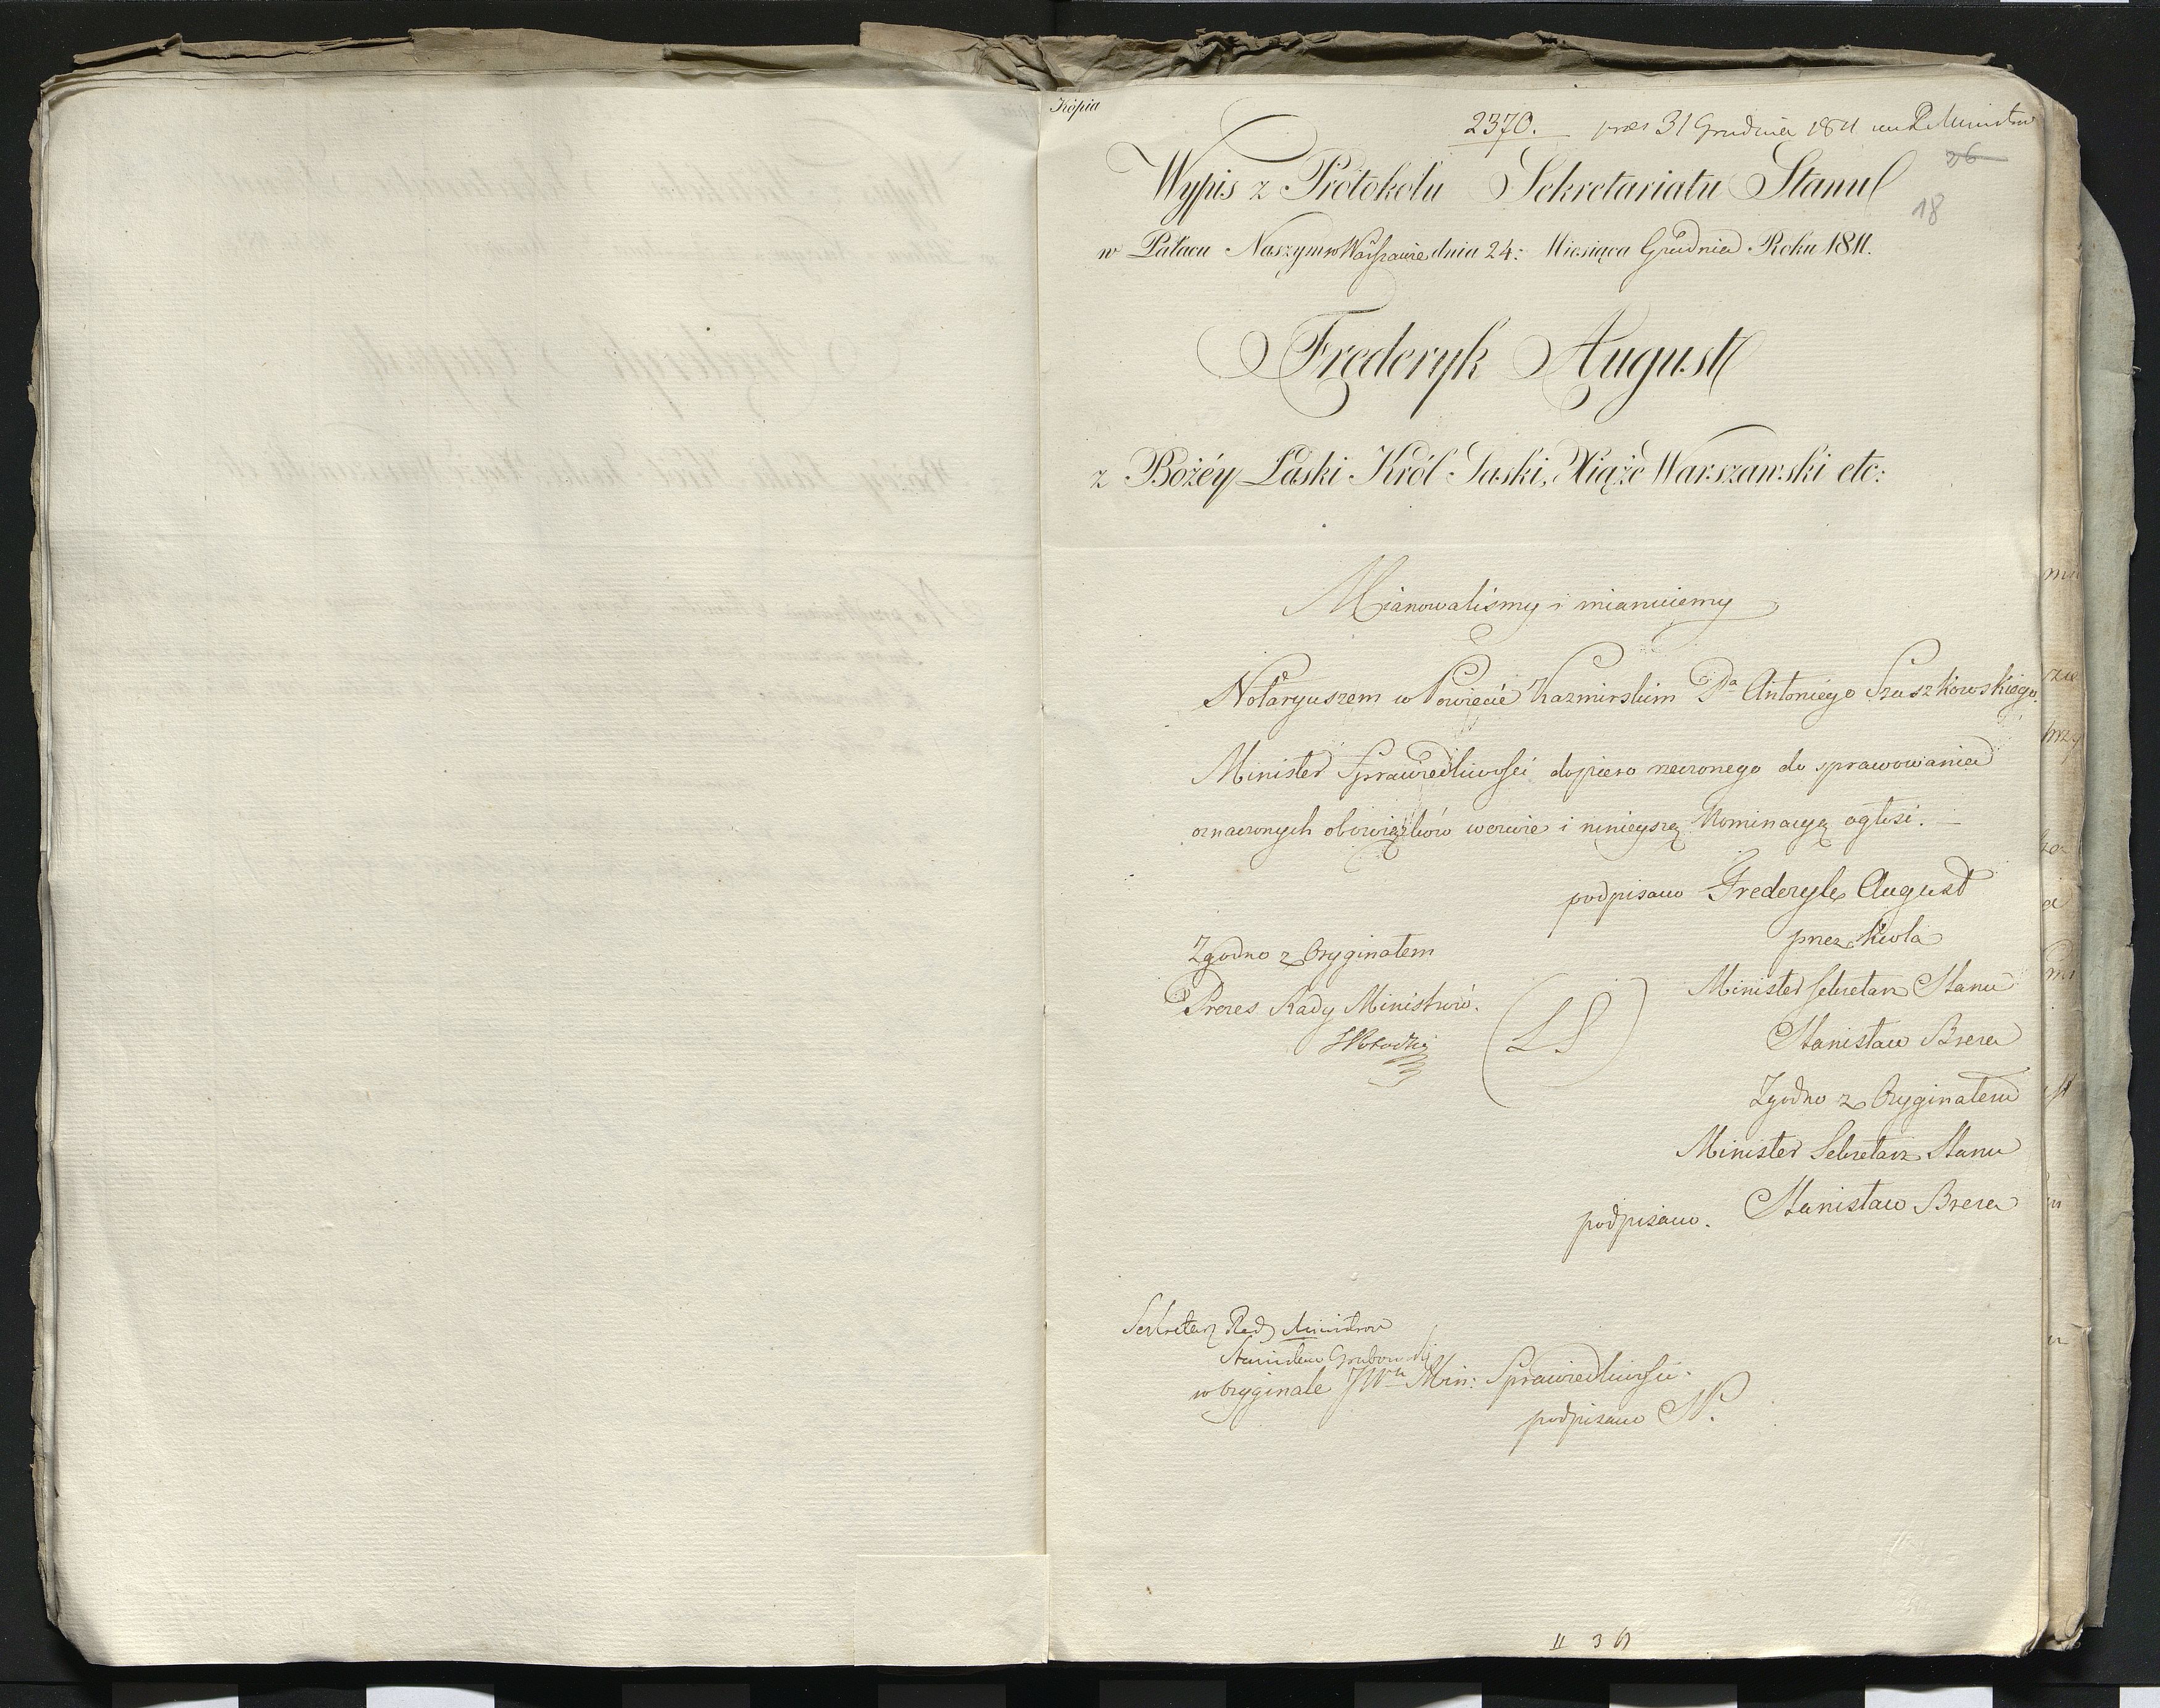 Kopia
2370. prez 31 Grudnia 1811 R Ministrów
26
18
Wypis z Protokołu Sekretariatu Stanu
w Pałacu Naszym w Warszawie dnia 24: Miesiąca Grudnia Roku 1811.
Frederyk August
z Bożéy Łaski Król Saski, Xiąże Warszawski etc:
Mianowaliśmy i mianuiemy
Notaryuszem w Powiecie Kazmirskim Pa Antoniego Szuszkowskiego.
Minister Sprawiedliwości dopiero rzeczonego do sprawowania
oznaczonych obowiązków wezwie i ninieyszą Nominacyą ogłosi. —
podpisano Frederyk August
przez Króla
Minister Sekretarz Stanu
Stanisław Breza
Zgodno z Oryginałem
Prezes Rady Ministrów.
(LS)
Zgodno z Oryginałem
Minister Sekretarz Stanu
podpisano. Stanisław Breza
Sekretarz Rady Ministrów
Stanisław Grabowski
w Oryginale JW Min: Sprawiedliwości.
podpisano
II 3